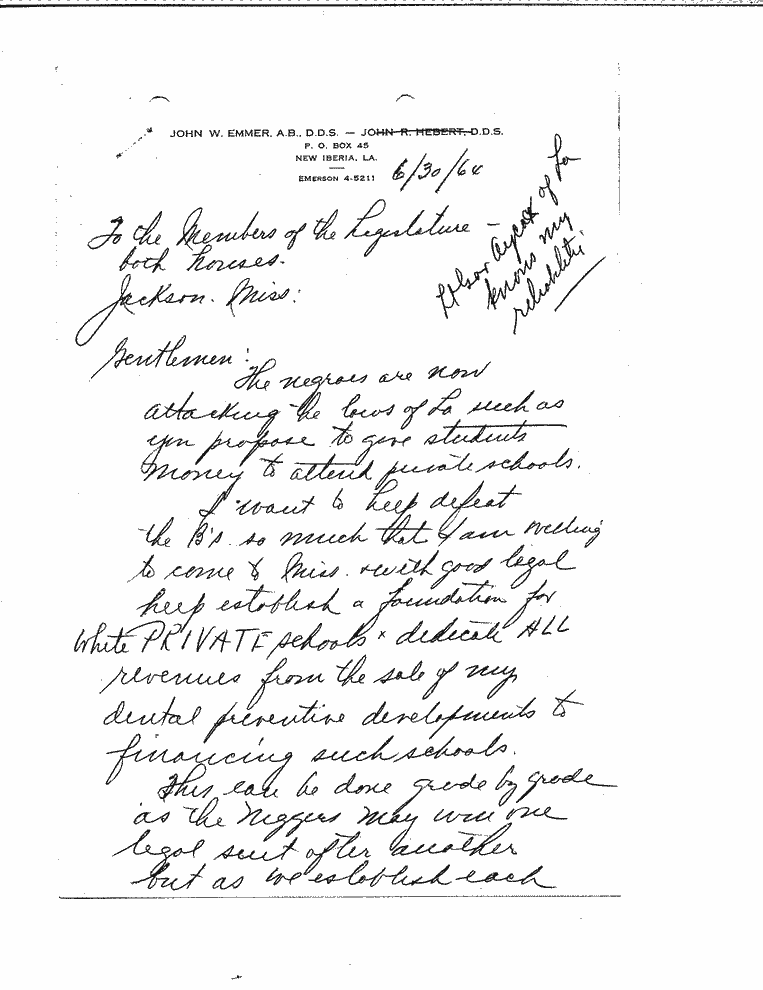 JOHN W. EMMER, A.B., D.D.S. — JOHN R. HEBERT, D.D.S.
P. O. BOX 45
NEW IBERIA, LA.
EMERSON 4-5211
6/30/64
Aycock of La
knows my
reliability
To the Members of the Legislature –
both houses.
Jackson. Miss:
Gentlemen:
The negroes are now
attacking the laws of La such as
you propose to give students
money to attend private schools.
I want to help defeat
the B's. so much that I am willing
to come to Miss. & with good legal
help establish a foundation for
White PRIVATE schools & dedicate ALL
revenues from the sale of my
dental preventive developments to
financing such schools.
This can be done grade by grade
as the niggers may win one
legal suit after another
but as we establish each